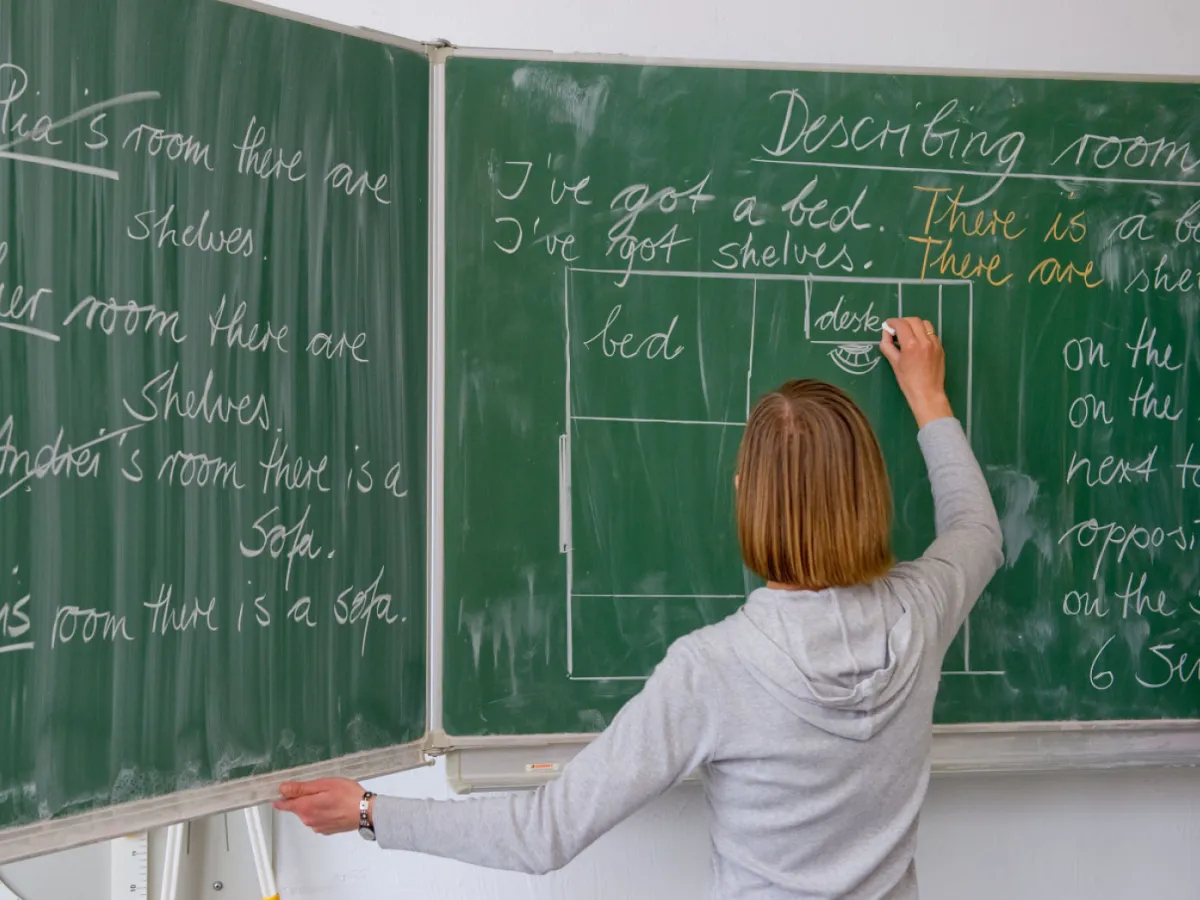 Pia's room there are
shelves.
room there are
shelves.
Andrei's room there is a
sofa.
room there is a sofa.
Describing room
I've got a bed. There is a
I've got shelves. There are
bed
desk
on the
on the
next
on the
6